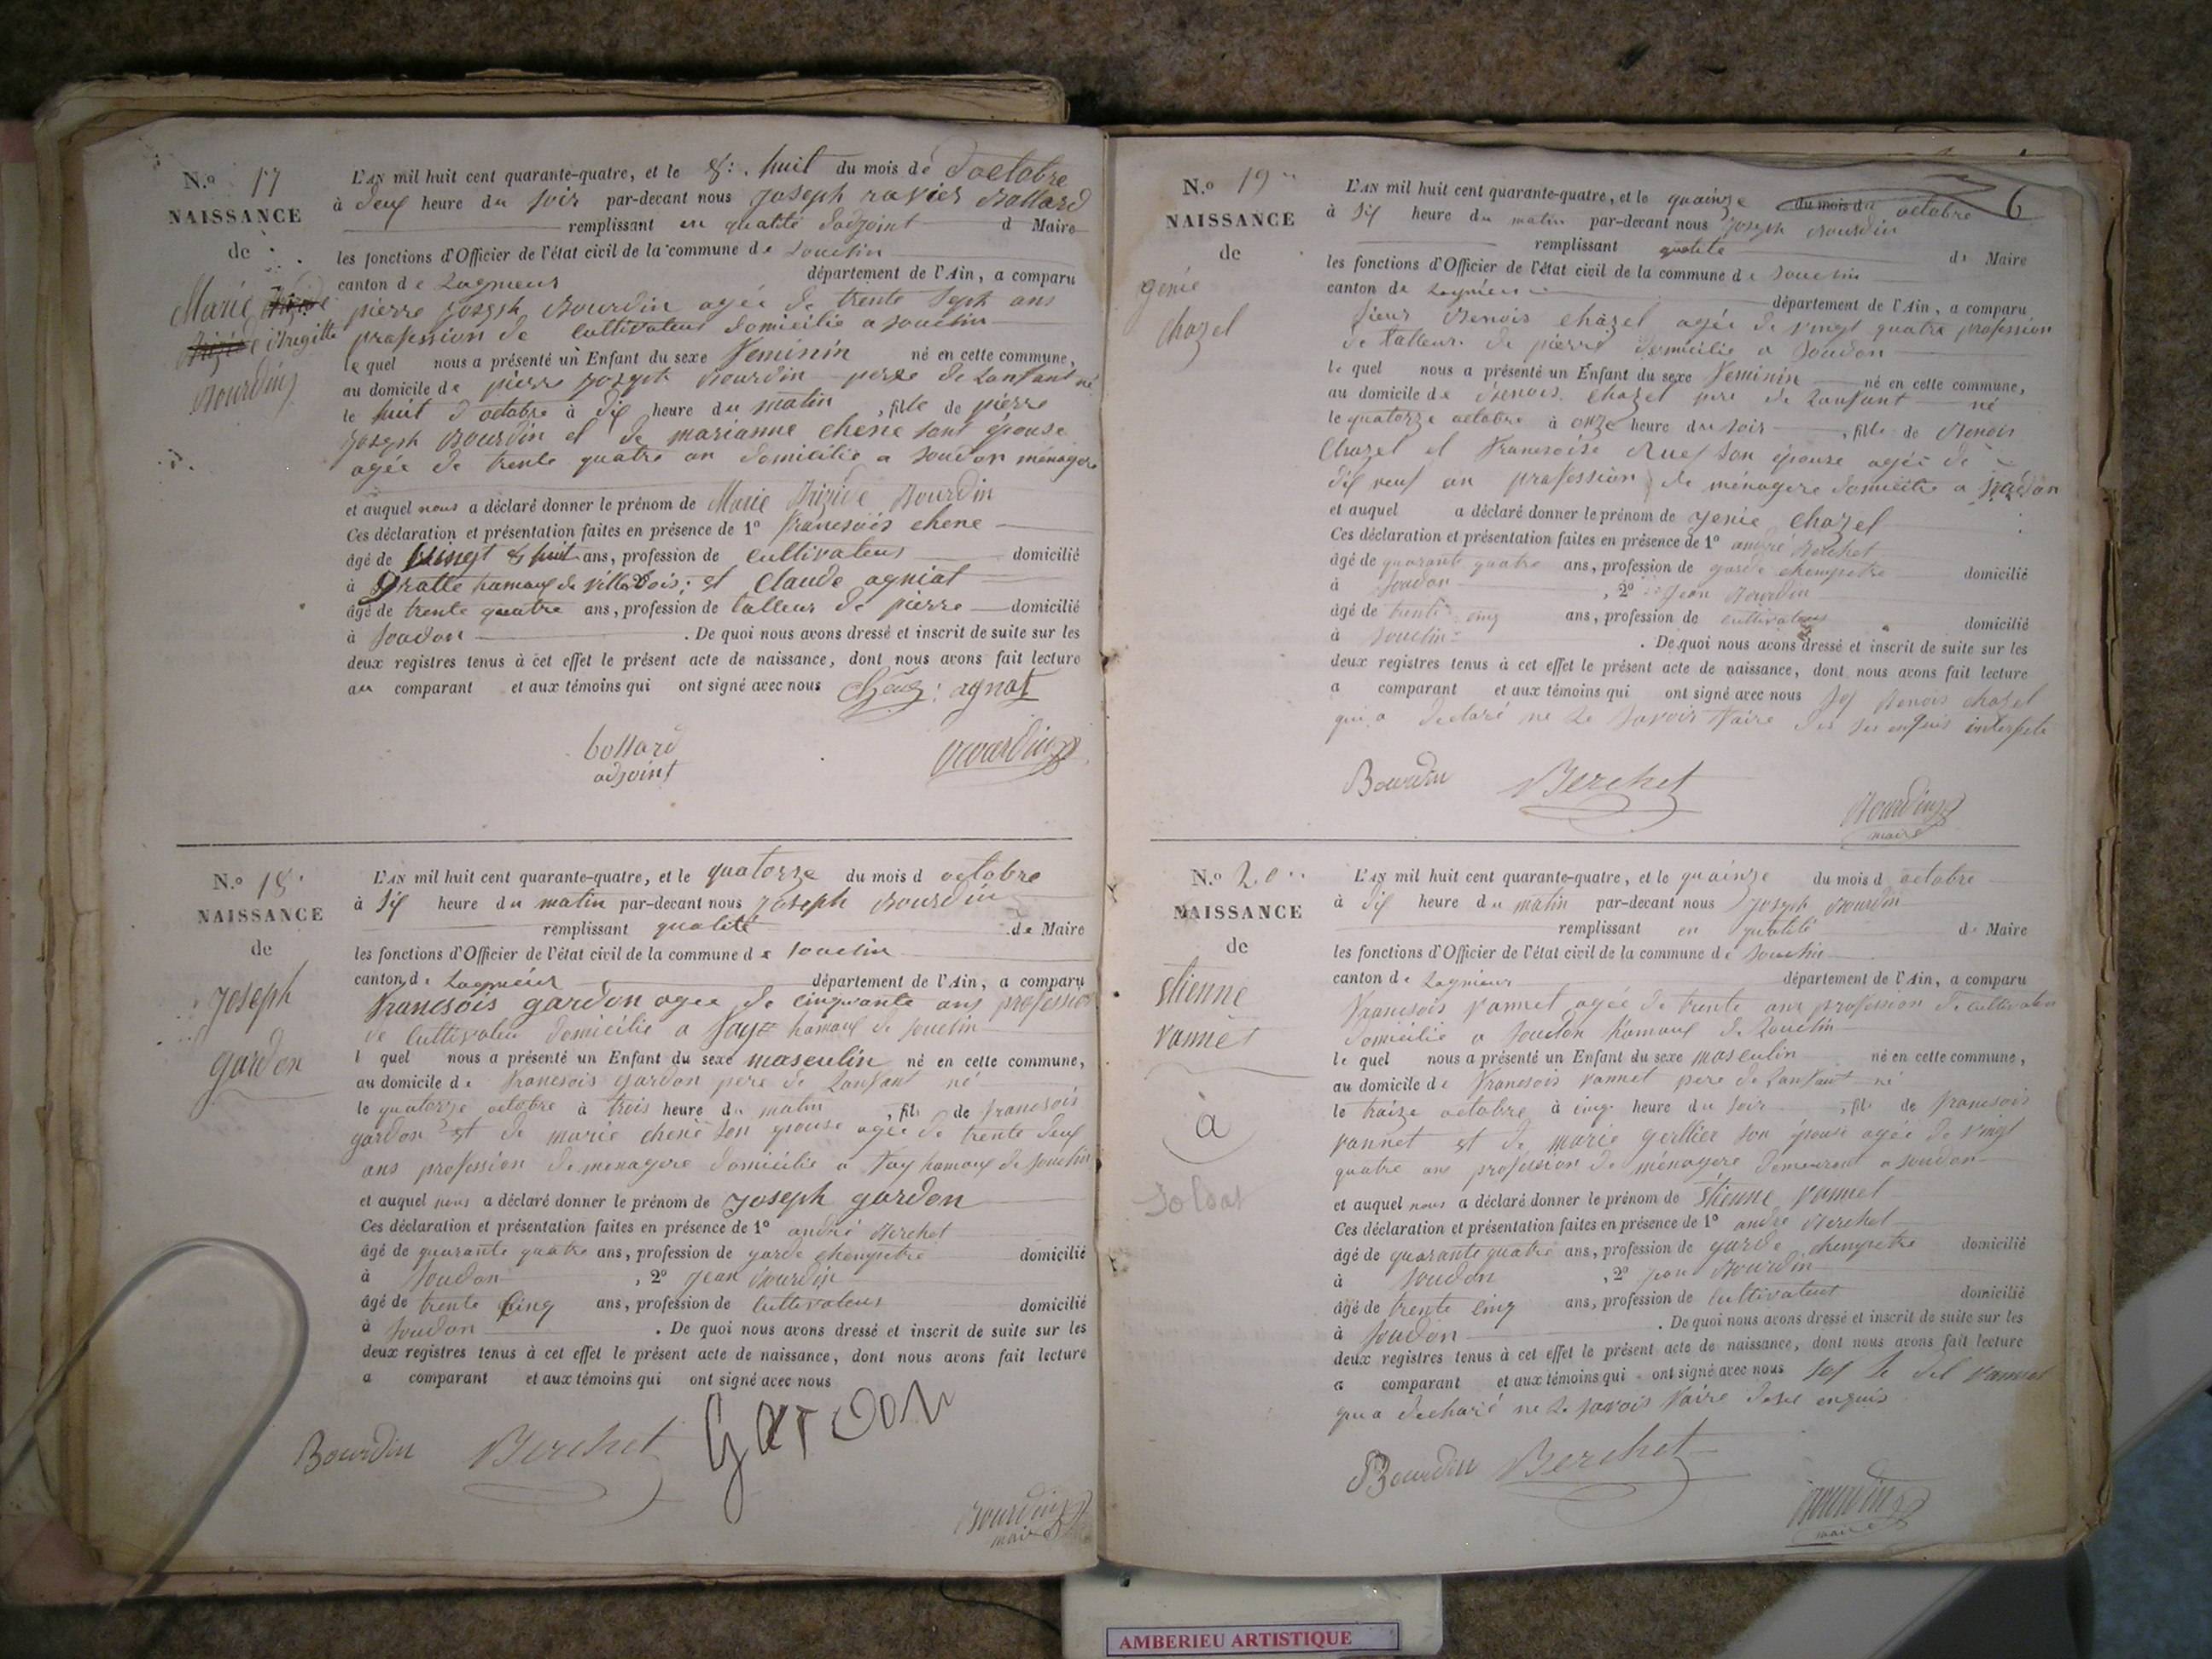 N.º 17
NAISSANCE
de
Marie
Brigitte
Bourdin
L'AN mil huit cent quarante-quatre, et le 8: huit du mois de d'octobre
à deux heure du soir par-devant nous joseph ravier Bollard
remplissant en qualité d'adjoint d Maire
les fonctions d'Officier de l'état civil de la commune de Souclin
canton de Lagnieux département de l'Ain, a comparu
pierre joseph Bourdin agée de trente Seph ans
profession de Cultivateur domicilie a Souclin
le quel nous a présenté un Enfant du sexe feminin né en cette commune,
au domicile de pierre joseph Bourdin perre de Lanfant né
le huit d'octobre à dix heure du matin , fille de pierre
joseph Bourdin et de marianne chene sont épouse
agée de trente quatre an domicilie a Soudon menagere
et auquel nous a déclaré donner le prénom de Marie Brizide Bourdin
Ces déclaration et présentation faites en présence de 1º francsois chene
âgé de vingt & huit ans, profession de cultivateur domicilié
à Gratte hamaux de villebois; et Claude agniat
âgé de trente quatre ans, profession de talleur de pierre domicilié
à Soudon . De quoi nous avons dressé et inscrit de suite sur les
deux registres tenus à cet effet le présent acte de naissance, dont nous avons fait lecture
au comparant et aux témoins qui ont signé avec nous agnat
bollard
adjoint
Bourdin
N.º 18
NAISSANCE
de
joseph
gardon
L'AN mil huit cent quarante-quatre, et le quatorze du mois d octobre
à dix heure du matin par-devant nous joseph Bourdin
remplissant qualité de Maire
les fonctions d'Officier de l'état civil de la commune de Souclin
canton de Lagnieux département de l'Ain, a comparu
francsois gardon agee de cinquante ans profession
de Cultivateur domicilie a fay hamaux de Souclin
l quel nous a présenté un Enfant du sexe masculin né en cette commune,
au domicile de francsois gardon pere de Lanfant né
le quatorze octobre à trois heure du matin , fils de francsois
gardon et de marie chene son epouse agée de trente deux
ans profession de menagere domicilie a fay hamaux de Souclin
et auquel nous a déclaré donner le prénom de joseph gardon
Ces déclaration et présentation faites en présence de 1º andré Berchet
âgé de quarante quatre ans, profession de garde chempetre domicilié
à Soudon , 2º jean Bourdin
âgé de trente Cinq ans, profession de Cultivateur domicilié
à Soudon . De quoi nous avons dressé et inscrit de suite sur les
deux registres tenus à cet effet le présent acte de naissance, dont nous avons fait lecture
a comparant et aux témoins qui ont signé avec nous
Bourdin Berchet Gardon
Bourdin
maire
6
N.º 19
NAISSANCE
de
génie
chazel
L'AN mil huit cent quarante-quatre, et le quainze du mois d octobre
à dix heure du matin par-devant nous joseph Bourdin
remplissant qualité de Maire
les fonctions d'Officier de l'état civil de la commune de Souclin
canton de Lagnieux département de l'Ain, a comparu
Sieur Benois chazel agée de vingt quatre profession
de talleur de pierre domicilie a Soudon
le quel nous a présenté un Enfant du sexe feminin né en cette commune,
au domicile de Benois chazel pere de Lanfant né
le quatorze octobre à onze heure du soir , fille de Benois
Chazel et francsoise Ruet son épouse agée de
dix neuf an profession de ménagere domicilie a Soudon
et auquel a déclaré donner le prénom de jenie Chazel
Ces déclaration et présentation faites en présence de 1º andré Berchet
âgé de quarante quatre ans, profession de garde chempetre domicilié
à Soudon , 2º jean Bourdin
âgé de trente cinq ans, profession de cultivateur domicilié
à Souclin . De quoi nous avons dressé et inscrit de suite sur les
deux registres tenus à cet effet le présent acte de naissance, dont nous avons fait lecture
a comparant et aux témoins qui ont signé avec nous Benois chazel
qui a declaré ne le savoir faire
Bourdin Berchet
Bourdin
maire
N.º 20
NAISSANCE
de
Etienne
vannet
à
Soldat
L'AN mil huit cent quarante-quatre, et le quainze du mois d octobre
à dix heure du matin par-devant nous joseph Bourdin
remplissant en qualité de Maire
les fonctions d'Officier de l'état civil de la commune de Souclin
canton de Lagnieux département de l'Ain, a comparu
francsois vannet agée de trente ans profession de cultivateur
domicilie a Soudon hamaux de Souclin
le quel nous a présenté un Enfant du sexe masculin né en cette commune,
au domicile de francsois vannet pere de Lanfant né
le traize octobre à cinq heure du soir , fils de francsois
vannet et de marie gerllier son épouse agée de vingt
quatre ans profession de ménagere demeurant a Soudon
et auquel nous a déclaré donner le prénom de Etienne vannet
Ces déclaration et présentation faites en présence de 1º andré Berchet
âgé de quarante quatre ans, profession de garde chempetre domicilié
à Soudon , 2º jean Bourdin
âgé de trente cinq ans, profession de Cultivateur domicilié
à Soudon . De quoi nous avons dressé et inscrit de suite sur les
deux registres tenus à cet effet le présent acte de naissance, dont nous avons fait lecture
a comparant et aux témoins qui ont signé avec nous vannet
qui a declaré ne le savoir faire
Bourdin Berchet
Bourdin
maire
AMBERIEU ARTISTIQUE